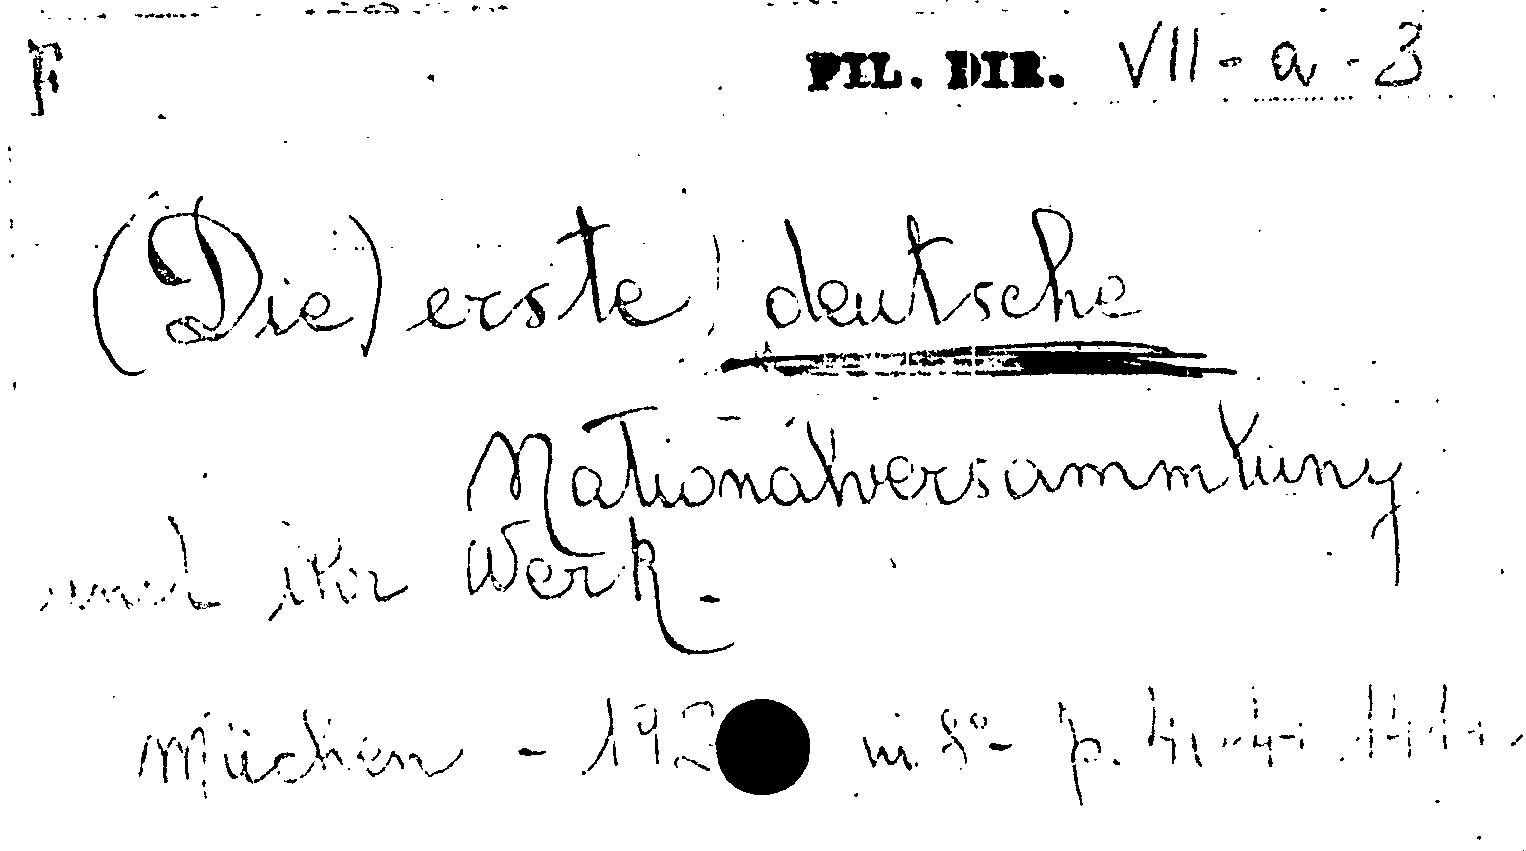 F FIL. DIR. VII-a-3
(Die) erste deutsche
Nationalversammlung
und ihr Werk.
München - 192 in 8°- p.